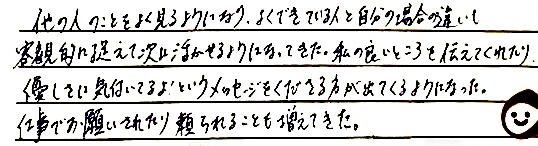 他の人のことをよく見るようになり、よくできている人と自分の場合の違いも
客観的に捉えて次に活かせるようになってきた。私の良いところを伝えてくれたり、
優しさに気付いてるよ!というメッセージをくださる方が出てくるようになった。
仕事でお願いされたり頼られることも増えてきた。